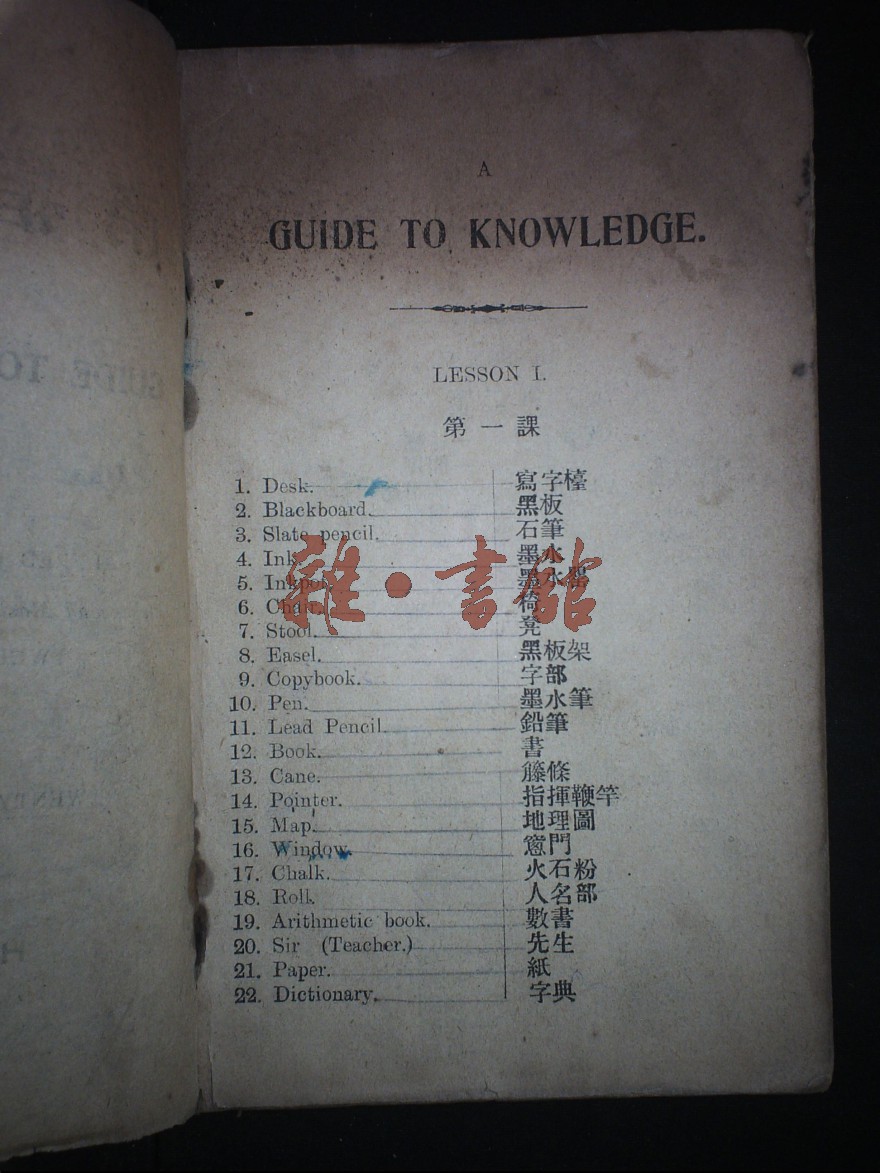 A
GUIDE TO KNOWLEDGE.
LESSON I.
第一課
1. Desk. 寫字檯
2. Blackboard. 黑板
3. Slate pencil. 石筆
4. Ink. 墨水
5. Inkpot. 墨水罌
6. Chair. 椅
7. Stool. 凳
8. Easel. 黑板架
9. Copybook. 字部
10. Pen. 墨水筆
11. Lead Pencil. 鉛筆
12. Book. 書
13. Cane. 籐條
14. Pointer. 指揮鞭竿
15. Map. 地理圖
16. Window. 窻門
17. Chalk. 火石粉
18. Roll. 人名部
19. Arithmetic book. 數書
20. Sir (Teacher.) 先生
21. Paper. 紙
22. Dictionary. 字典
雜·書館